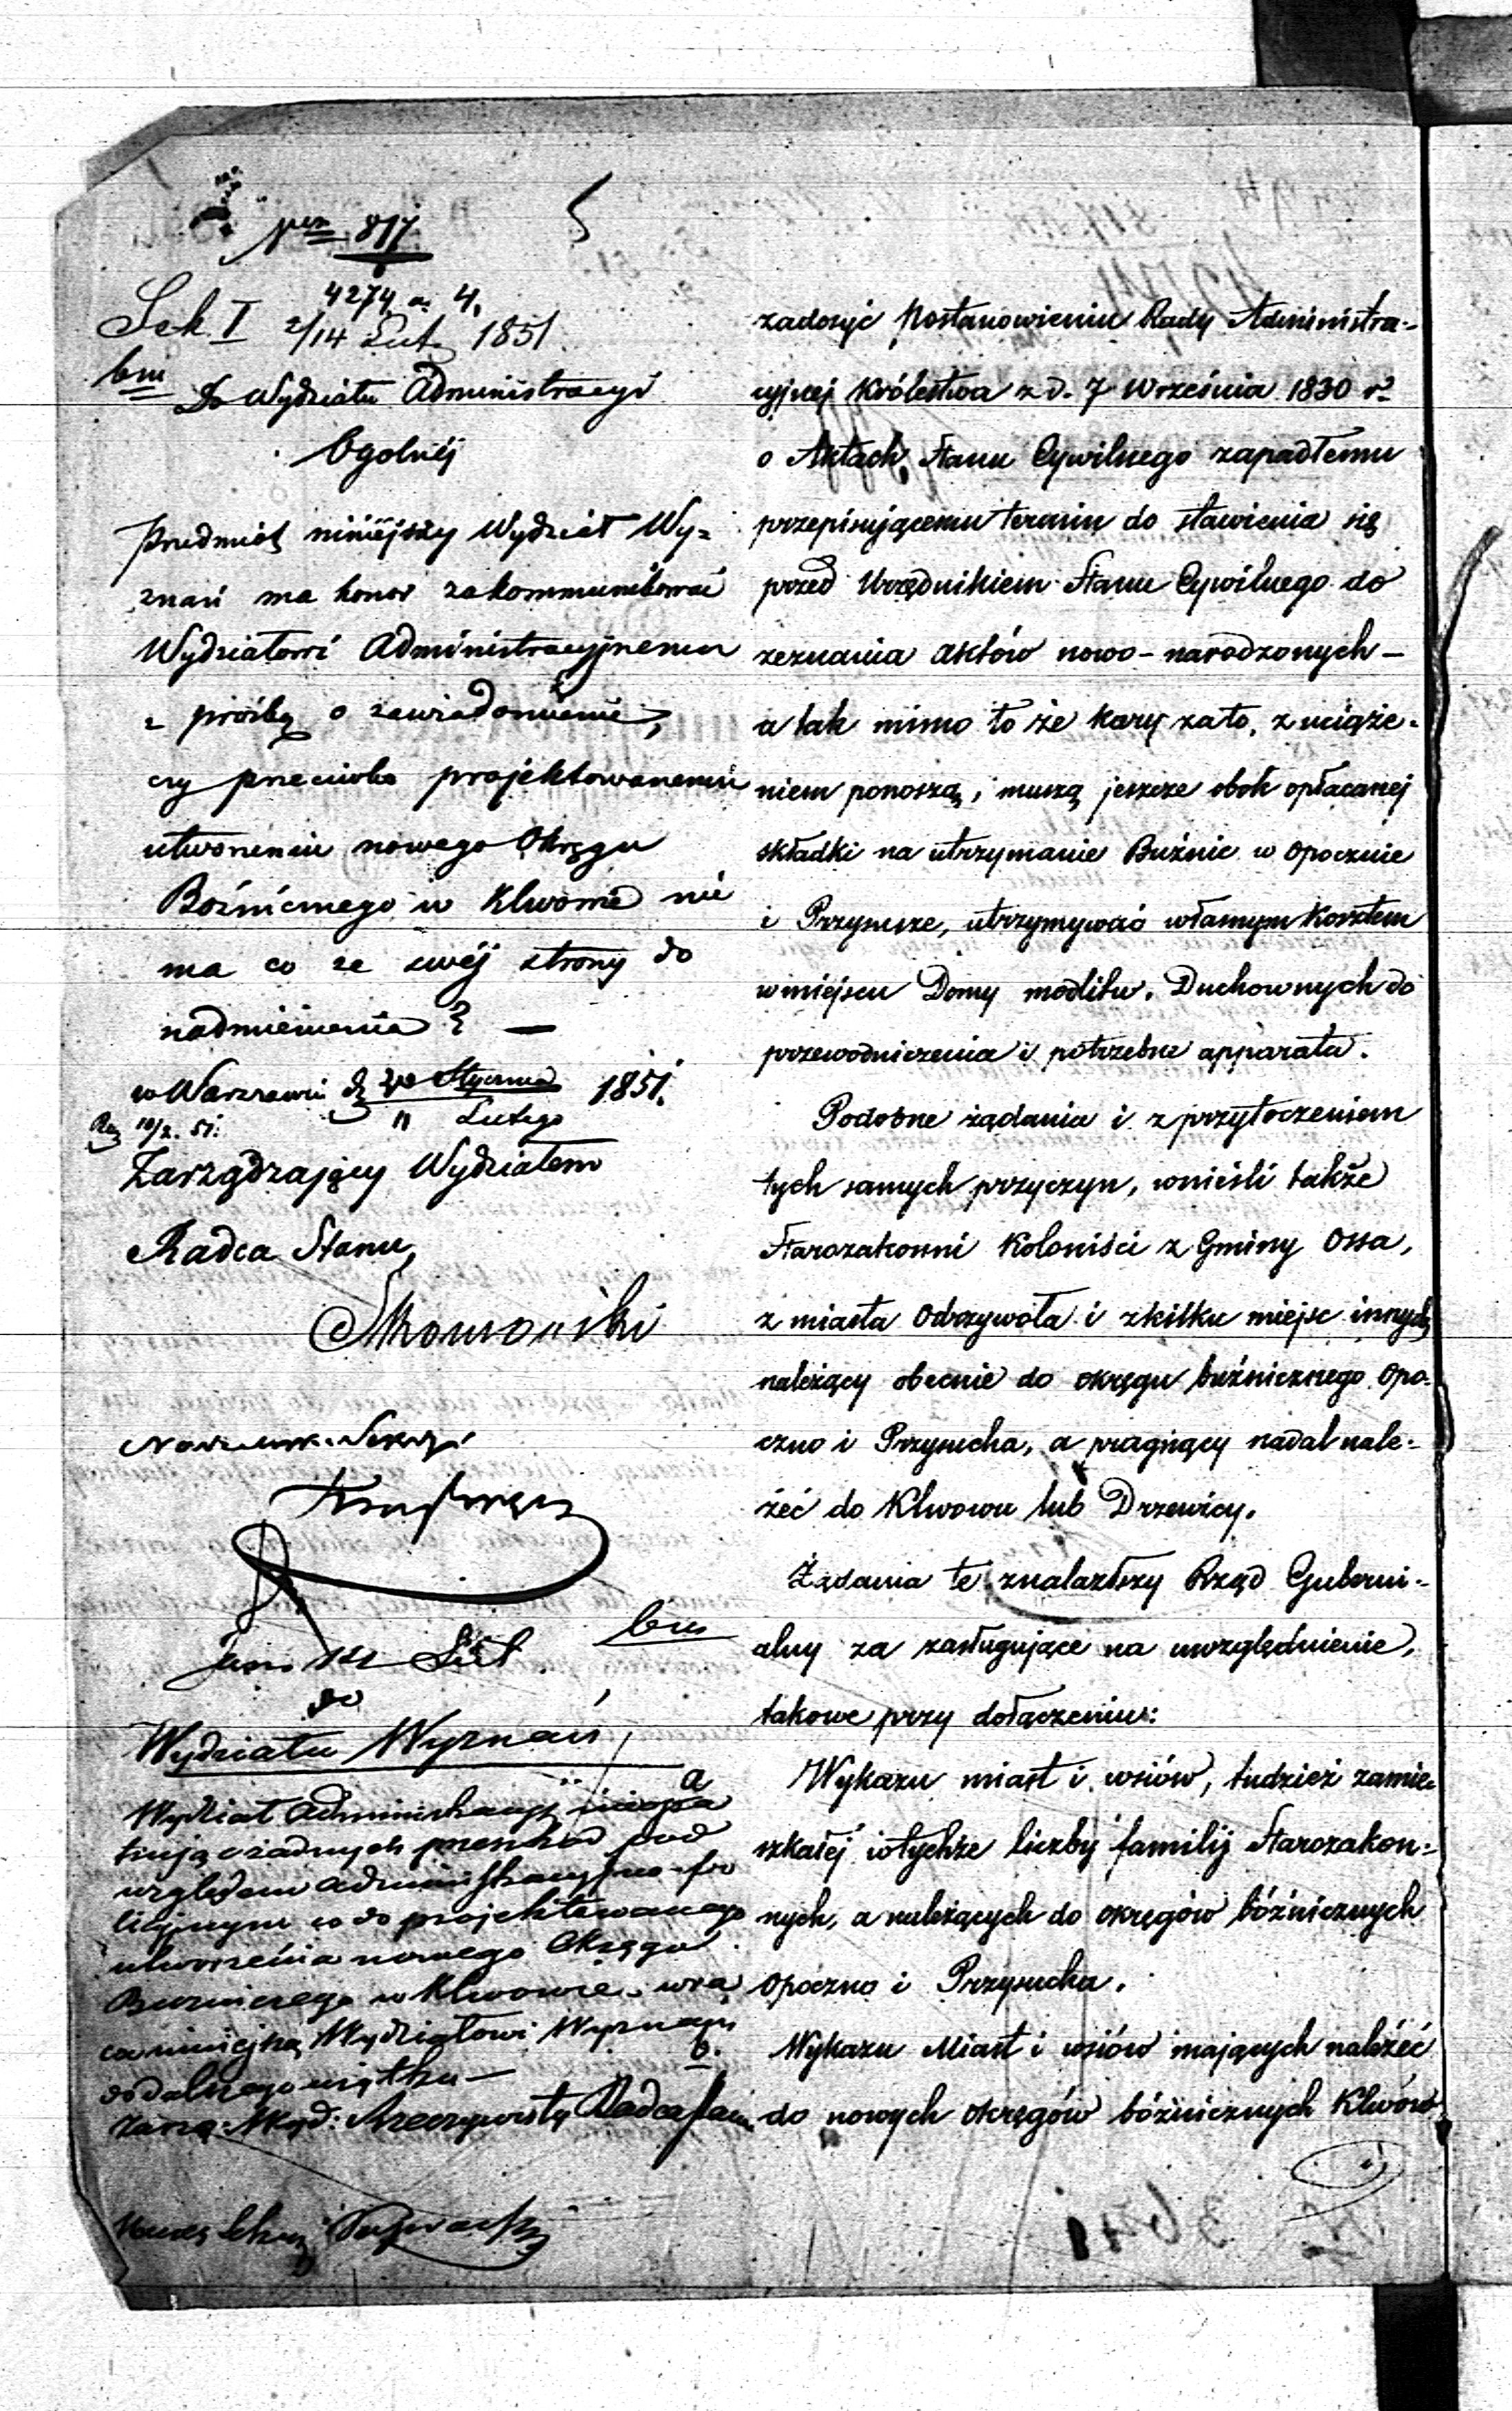 817
4274 a. 4.
Sek I 2/14 Lut. 1851
bm
Do Wydziału Administracyi
Ogolnéj
Przedmiot niniéjszy Wydział Wy=
znań ma honor zakommunikować
Wydziałowi Administracyjnemu
z prośbą o zawiadomienie,
czy przeciwko projektowanemu
utworzeniu nowego Okręgu
Bóźnicznego w Klwowie nie
ma co ze swéj strony do
nadmienienia? —
w Warszawie d. Stycznia 1851.
11 Lutego
10/2. 51.
Zarządzający Wydziałem
Radca Stanu,
Lut bm
do
Wydziału Wyznań,
a
Wydział Administracyj
żadnych przeszkod pod
względem administracyjno-po
licyjnym co do projektowanego
utworzenia nowego Okręgu
w Klwowie, wra
ca niniejszą Wydziałowi Wyznań
b.
do dalszego użytku —
Rzeczywisty Radca Stanu
zadosyć Postanowieniu Rady Administra-
cyjnej Królestwa z d. 7 Września 1830 r.
o Aktach Stanu Cywilnego zapadłemu
przepisującemu termin do stawienia się
przed Urzędnikiem Stanu Cywilnego do
zeznania aktów nowo-narodzonych —
a tak mimo to że kary za to, z uciąże-
niem ponoszą, i muszą jeszcze obok opłacanej
składki na utrzymanie Buźnic w Opocznie
i Przysusze, utrzymywać własnym Kosztem
w miejscu Domy modlitw. Duchownych do
przewodniczenia i potrzebne apparata.
Podobne żądania i z przytoczeniem
tych samych przyczyn, wnieśli także
Starozakonni Koloniści z Gminy Ossa,
z miasta Odrzywoła i z kilku miejsc innych
należący obecnie do okręgu buźnicznego Opo-
czno i Przysucha, a pragnący nadal nale-
żeć do Klwowu lub Drzewicy.
Żądania te znalazłszy Rząd Guberni-
alny za zasługujące na uwzględnienie,
takowe przy dołączeniu:
Wykazu miast i wsiów, tudzież zamie-
szkałej w tychże liczby familij Starozakon-
nych, a należących do okręgów bóźnicznych
Opoczno i Przysucha.
Wykazu Miast i wsiów mających należéć
do nowych okręgów bóźnicznych Klwów